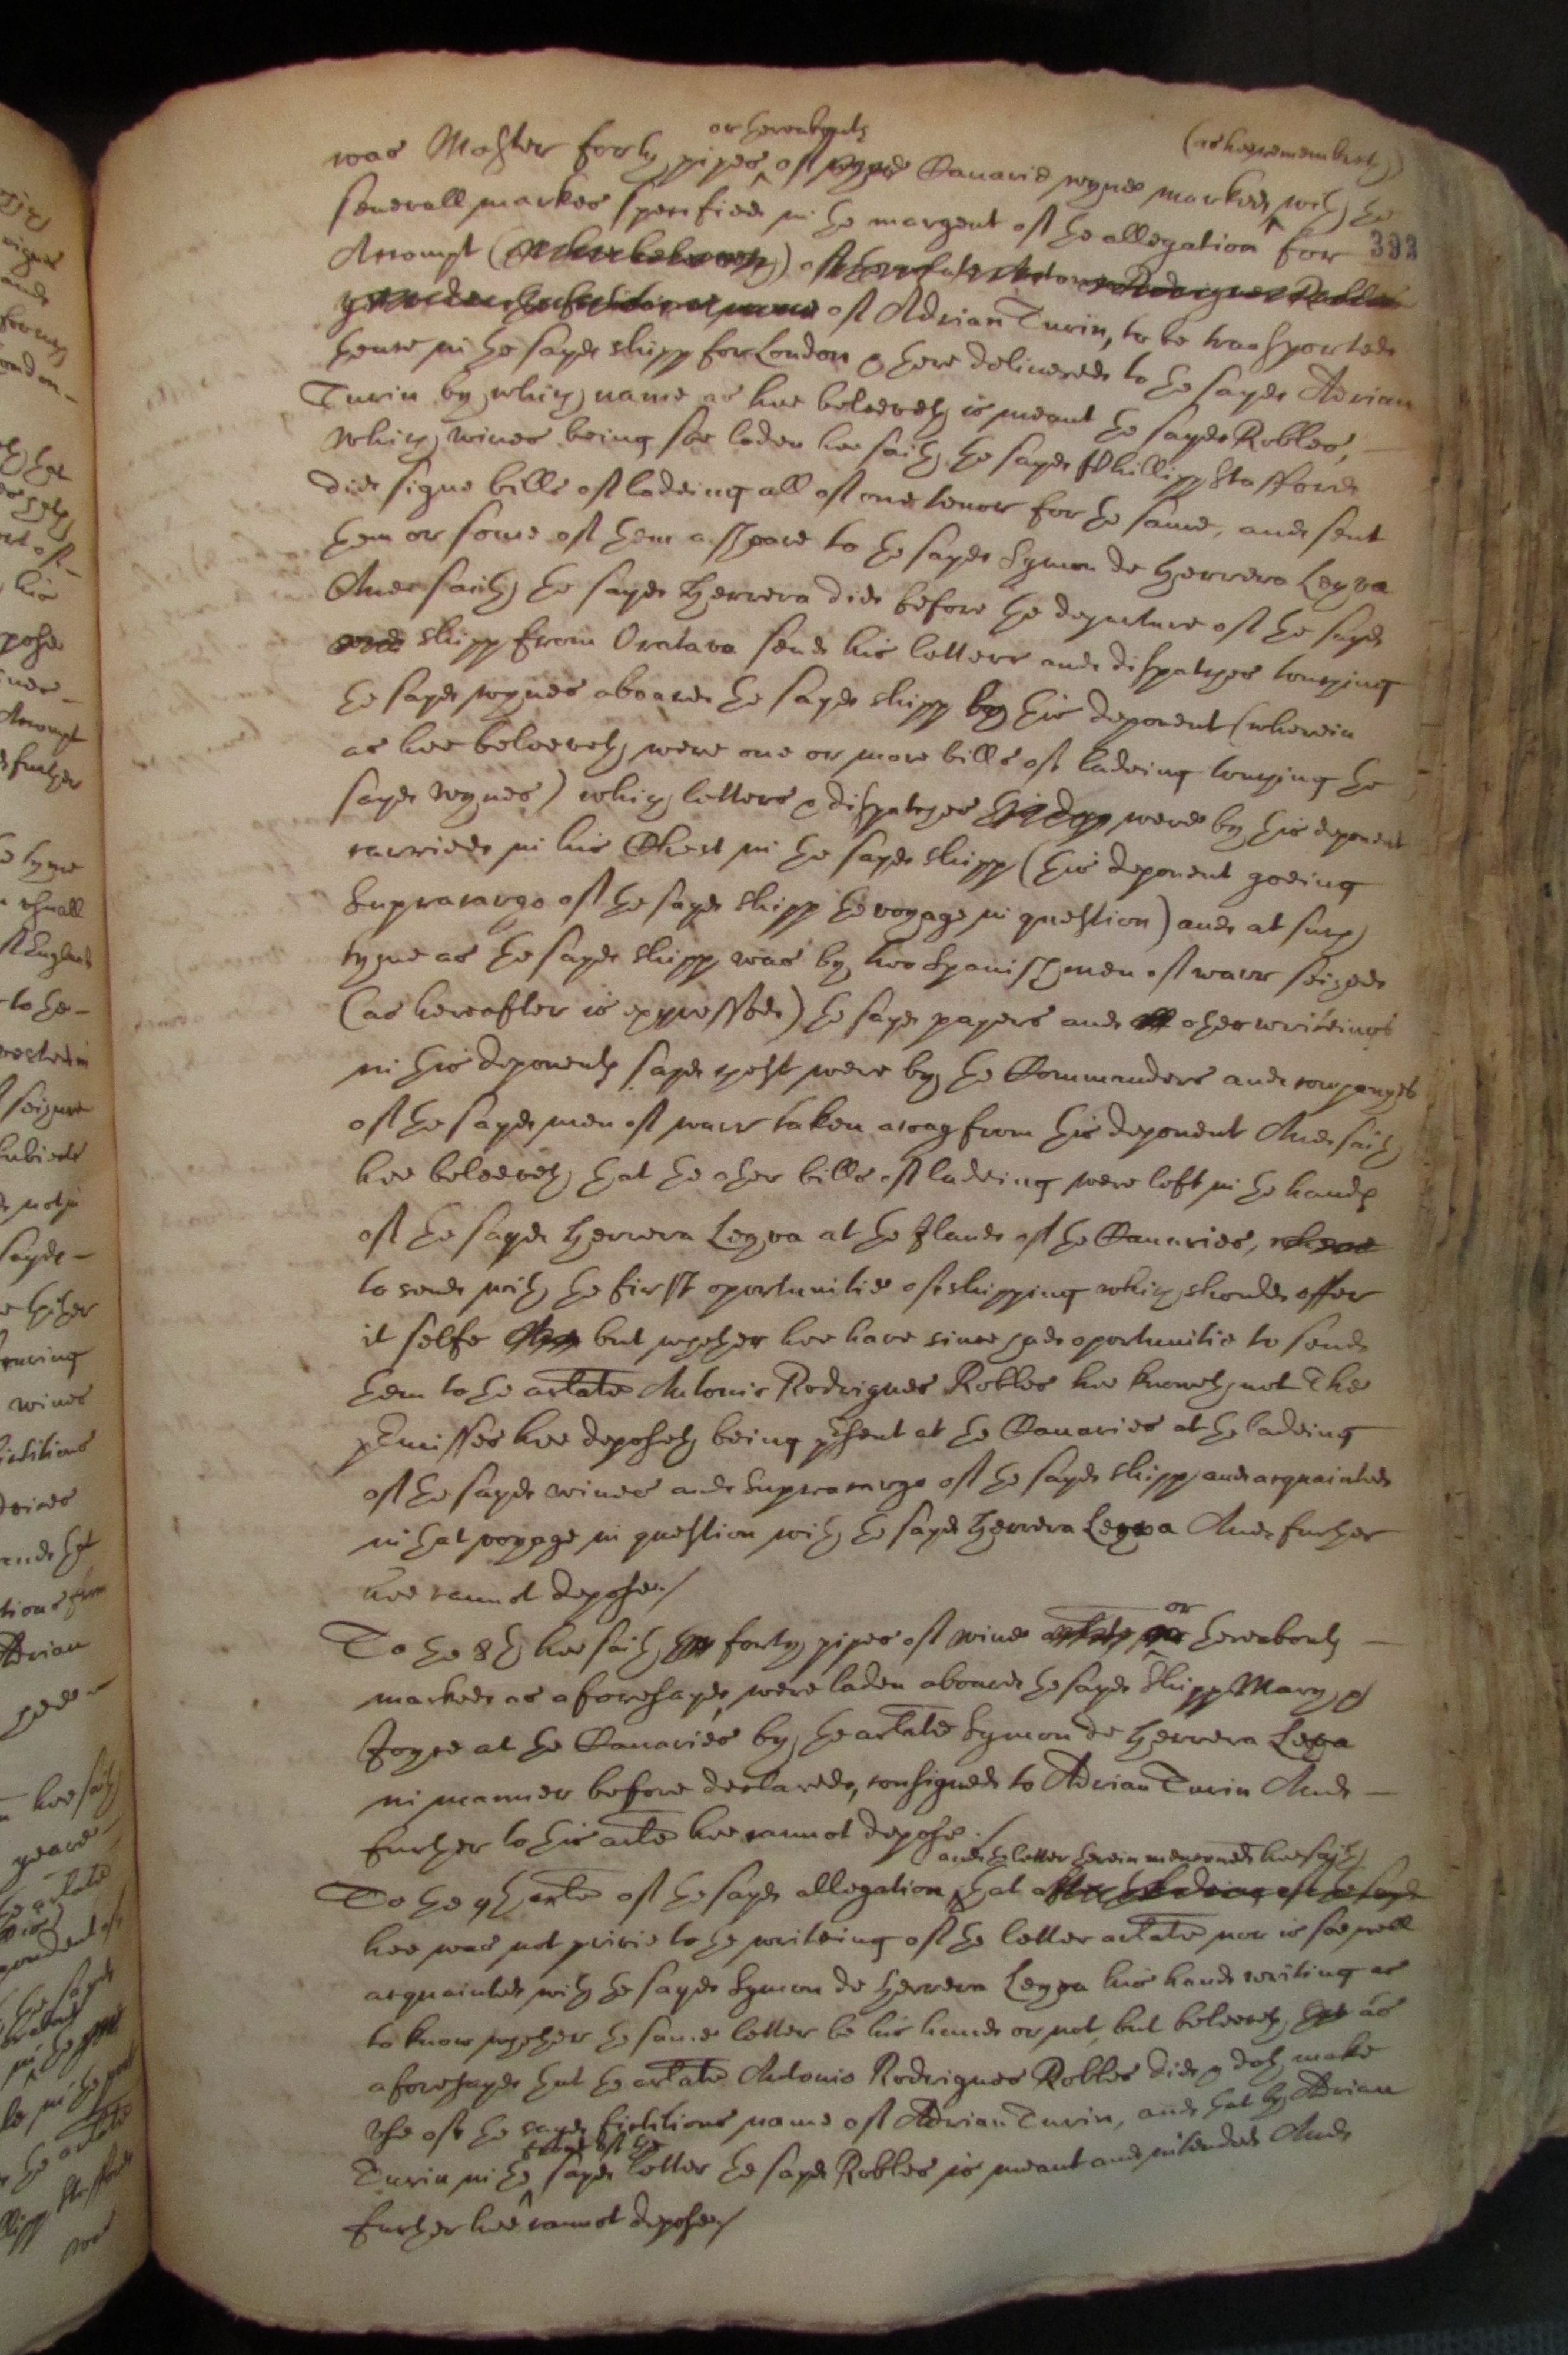 or thereabouts (as hee remembreth)
was Master forty pipes of Canarie wynes marked with the
severall markes specified in the margent of the allegation for 393
Accompt (as hee beleeveth) of
of Adrian Turin, to be transported
thence in the sayd shipp for London & there delivered to the sayd Adrian
Turin by which name as hee beleeveth is meant the sayd Robles,
which wines being soe laden hee saith the sayd Phillipp Stafford
did signe bills of ladeing all of one tenor for the same, and sent
them or some of them ashoare to the sayd Symon de Herrera Leyva
And saith the sayd Herrera did before the departure of the sayd
shipp from Oratava send his letters and dispatches touching
the sayd wynes aboard the sayd shipp by this deponent (wherein
as hee beleeveth were one or more bills of ladeing touching the
sayd wynes) which letters & dispatches were by this deponent
carried in his Chest in the sayd shipp (this deponent goeing
Supracargo of the sayd shipp the voyage in question) and at such
tyme as the sayd shipp was by two Spanish men of warr seized
(as hereafter is expressed) the sayd papers and other writeings
in this deponents sayd chest were by the Commanders and companyes
of the sayd men of warr taken away from this deponent And saith
hee beleeveth that the other bills of ladeing were left in the hands
of the sayd Herrera Leyva at the Iland of the Canaries,
to send with the first oportunitie of shipping which should offer
it selfe but whether hee have since had oportunitie to send
them to the arlate Antonio Rodrigues Robles hee knoweth not The
premisses hee deposeth being present at the Canaries at the ladeing
of the sayd wines and Supracargo of the sayd shipp and acquainted
in that voyage in question with the sayd Herrera Leyva And further
hee cannot depose./
To the 8th hee saith forty pipes of wine or thereabouts
marked as aforesayd were laden aboard the sayd shipp Mary &
Joyce at the Canaries by the arlate Symon de Herrera Leyva
in manner before declared, consigned to Adrian Turin And
further to this arle hee cannot depose./
and the letter therein mencioned hee saith
To the 9th arle of the sayd allegation that
hee was not privie to the writeing of the letter arlate nor is soe well
acquainted with the sayd Symon de Herrera Leyva his hand writing as
to know whether the same letter be his hand or not, but beleeveth as
aforesayd that the arlate Antonio Rodrigues Robles did & doth make
use of the sayd fictitious name of Adrian Turin, and that by Adrian
Turin in the sayd letter the sayd Robles is meant and intended And
further hee cannot depose./